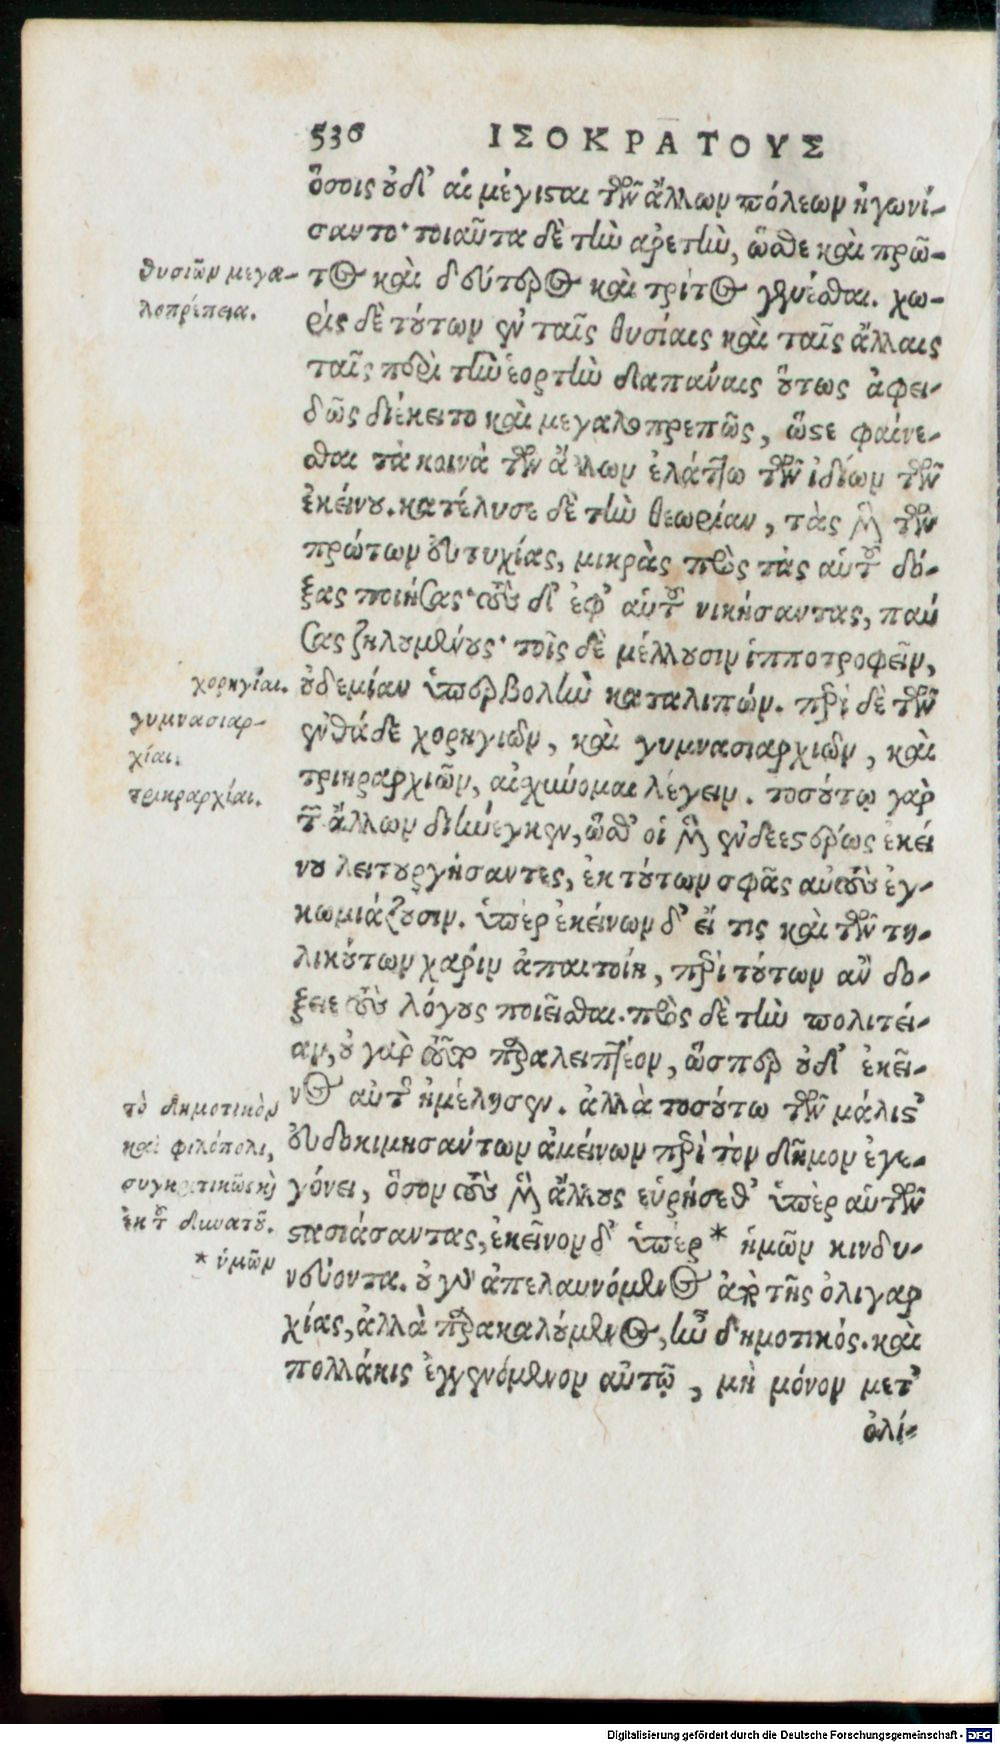 536 ΙΣΟΚΡΑΤΟΥΣ
ὅσοις οὐδ' αἱ μέγισται τῶν ἄλλων πόλεων ἠγωνί-
σαντο· τοιαῦτα δὲ τὴν ἀρετὴν, ὥσθε καὶ πρῶ-
τος καὶ δεύτερος καὶ τρίτος γενέσθαι. χω-
ρὶς δὲ τούτων ἐν ταῖς θυσίαις καὶ ταῖς ἄλλαις
ταῖς περὶ τὴν ἑορτὴν δαπάναις οὕτως ἀφει-
δῶς διέκειτο καὶ μεγαλοπρεπῶς, ὥστε φαίνε-
σθαι τὰ κοινὰ τῶν ἄλλων ἐλάττω τῶν ἰδίων τῶν
ἐκείνου. κατέλυσε δὲ τὴν θεωρίαν, τὰς μὲν τῶν
πρώτων εὐτυχίας, μικρὰς πρὸς τὰς αὑτοῦ δό-
ξας ποιήσας· τοὺς δ' ἐφ' αὑτοῦ νικήσαντας, παύ
σας ζηλουμένους· τοῖς δὲ μέλλουσιν ἱπποτροφεῖν,
οὐδεμίαν ὑπερβολὴν καταλιπών. περὶ δὲ τῶν
ἐνθάδε χορηγιῶν, καὶ γυμνασιαρχιῶν, καὶ
τριηραρχιῶν, αἰσχύνομαι λέγειν. τοσούτῳ γὰρ
τῶν ἄλλων διήνεγκεν, ὥσθ' οἱ μὲν ἐνδεεστέρως ἐκεί
νου λειτουργήσαντες, ἐκ τούτων σφᾶς αὐτοὺς ἐγ-
κωμιάζουσιν. ὑπὲρ ἐκείνων δ' εἴ τις καὶ τῶν τη-
λικούτων χάριν ἀπαιτοίη, περὶ τούτων ἂν δό-
ξειε τοὺς λόγους ποιεῖσθαι. πρὸς δὲ τὴν πολιτεί-
αν, οὐ γὰρ οὖν παραλειπτέον, ὥσπερ οὐδ' ἐκεῖ-
νος αὐτῆς ἠμέλησεν. ἀλλὰ τοσούτω τῶν μάλιστ'
εὐδοκιμησάντων ἀμείνων περὶ τὸν δῆμον ἐγε-
γόνει, ὅσον τοὺς μὲν ἄλλους εὑρήσεθ' ὑπὲρ αὑτῶν
στασιάσαντας, ἐκεῖνον δ' ὑπὲρ * ἡμῶν κινδυ-
νεύοντα. οὐ γὰρ ἀπελαυνόμενος ἀπὸ τῆς ὀλιγαρ
χίας, ἀλλὰ παρακαλούμενος, ἦν δημοτικός. καὶ
πολλάκις ἐγγενόμενον αὐτῷ, μὴ μόνον μετ'
ὀλί-
θυσιῶν μεγα-
λοπρέπεια.
χορηγίαι.
γυμνασιαρ-
χίαι.
τριηραρχίαι.
τὸ δημοτικὸν
καὶ φιλόπολι,
συγκριτικῶς καὶ
ἐκ τοῦ δυνατοῦ.
* ὑμῶν
Digitalisierung gefördert durch die Deutsche Forschungsgemeinschaft - DFG